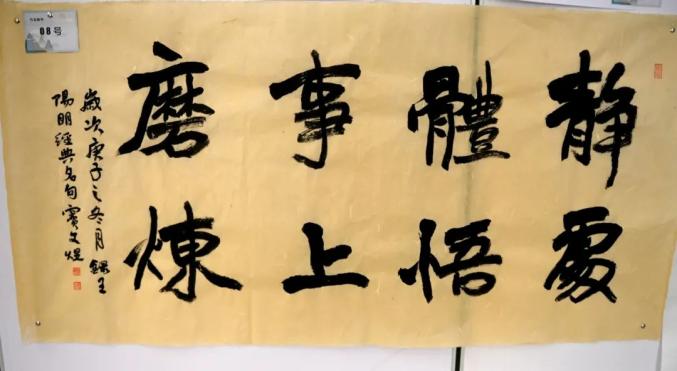 靜處
體悟
事上
磨煉
歲次庚子之冬月錄王
陽明經典名句竇文煜
08号